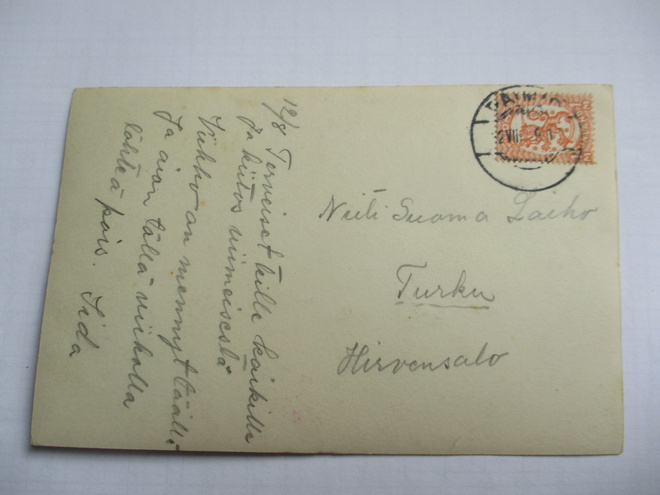 12/8 Terveiset teille kaikille
ja kiitos viimeisestä
Viikko on mennyt täällä
Ja aion tällä viikolla
lähteä pois. Iida
Neiti Suoma Laiho
Turku
Hirvensalo